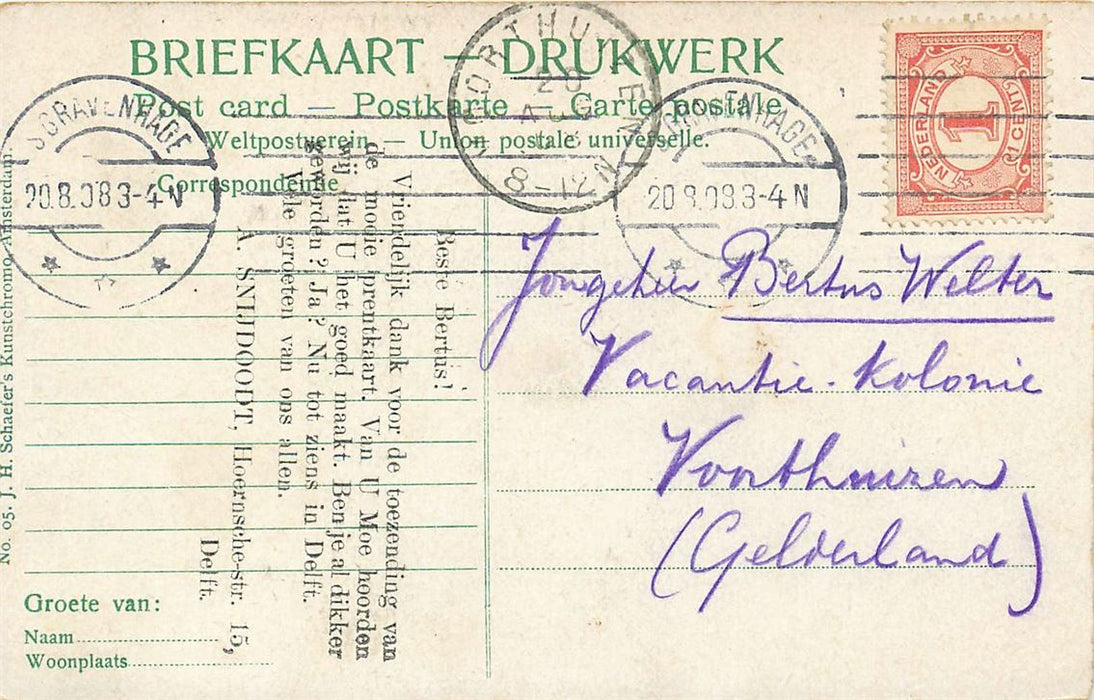 BRIEFKAART — DRUKWERK
Post card — Postkarte — Carte postale
Weltpostverein — Union postale universelle.
Correspondentie
S GRAVENHAGE
20.8.08 3-4 N
VOORTHUIZEN
20 AUG
8-12 N
S GRAVENHAGE
20.8.08 3-4 N
NEDERLAND
1
1 CENT
Beste Bertus!
Vriendelijk dank voor de toezending van
de mooie prentkaart. Van U Moe hoorden
wij dat U het goed maakt. Ben je al dikker
geworden? Ja? Nu tot ziens in Delft.
Vele groeten van ons allen.
A SNIJDOODT, Hoernsche-str. 15,
Delft.
Jongeheer Bertus Welter
Vacantie-kolonie
Voorthuizen
(Gelderland)
Groete van:
Naam
Woonplaats
No. 05. J. H. Schaefer's Kunstchromo, Amsterdam.